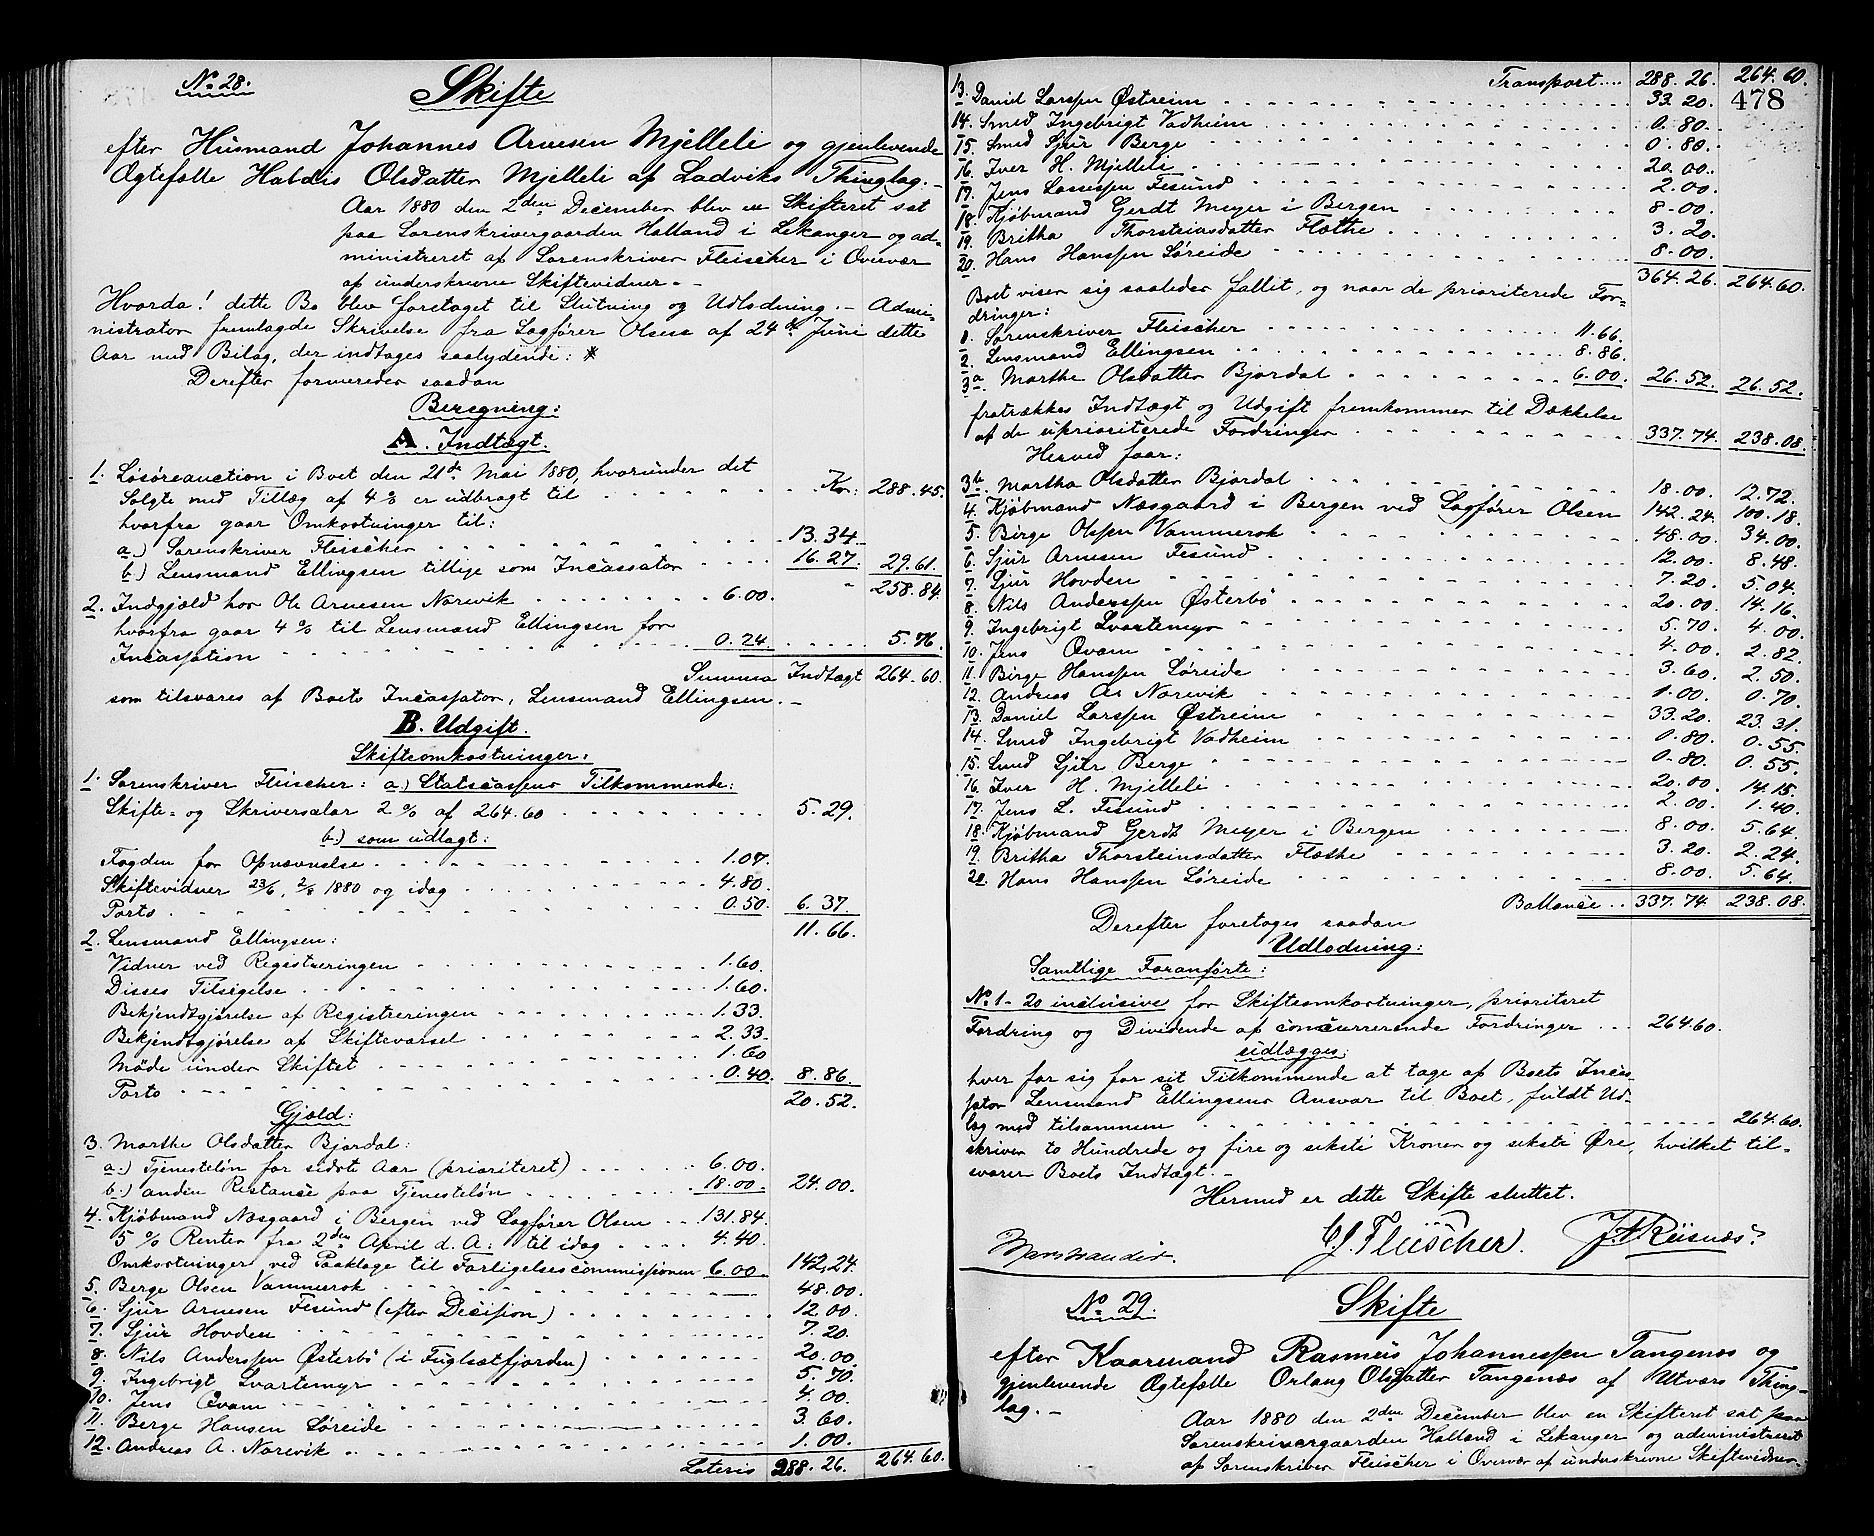 No. 28.
Skifte
efter Husmand Johannes Arnesen Mjelleli og gjenlevende
Ægtefælle Haldis Olsdatter Mjelleli af Ladviks Thinglag.-
Aar 1880 den 2den December blev en Skifteret sat
paa Sorenskrivergaarden Halland i Lekanger og ad-
ministreret af Sorenskriver Fleischer i Overvær
af underskrevne Skiftevidner.-
Hvorda! dette Bo blev foretaget til Slutning og Udlodning.- Admi-
nistrator fremlagde Skrivelse fra Sagfører Olsen af 24de Juni dette
Aar med Bilag, der indtages saalydende: *
Derefter formeredes saadan
Beregning:
A. Indtægt.
1. Løsøreauction i Boet den 21de Mai 1880, hvorunder det
Solgte med Tillæg af 4 % er udbragt til Kr: 288.45.
hvorfra gaar Omkostninger til:
a.) Sorenskriver Fleischer 13.34.
b.) Lensmand Ellingsen tillige som Incassator 16.27. 29.61.
258.84.
2. Indgjæld hos Ole Arnesen Norevik 6.00.
hvorfra gaar 4 % til Lensmand Ellingsen for
Incassation 0.24. 5.76.
Summa Indtægt 264.60.
som tilsvares af Boets Incassator, Lensmand Ellingsen.-
B. Udgift.
Skifteomkostninger:
1. Sorenskriver Fleischer: a.) Statscassens Tilkommende:
Skifte- og Skriversalær 2 % af 264.60 5.29.
b.) som udlagt:
Fogden for Opnævnelse 1.07.
Skiftevidner 23/6, 2/8 1880 og idag 4.80.
Porto 0.50. 6.37.
11.66.
2. Lensmand Ellingsen:
Vidner ved Registreringen 1.60.
Disses Tilsigelse 1.60.
Bekjendtgjørelse af Registreringen 1.33.
Bekjendtgjørelse af Skiftevarsel 2.33.
Møde under Skiftet 1.60
Porto 0.40. 8.86.
20.52.
Gjæld:
3. Marthe Olsdatter Bjordal:
a.) Tjenesteløn for sidste Aar (prioriteret) 6.00.
b.) anden Restance paa Tjenesteløn 18.00. 24.00.
4. Kjøbmand Næsgaard i Bergen ved Sagfører Olsen 131.84.
5 % Renter fra 2den April d. A. til idag 4.40.
Omkostninger ved Paaklage til Forligelsescommissionen 6.00. 142.24.
5. Berge Olsen Vammerok 48.00.
6. Sjur Arnesen Fesund (efter Decision) 12.00.
7. Sjur Hovden 7.20.
8. Nils Anderssen Østerbø (i Fuglsætfjorden) 20.00.
9. Ingebrigt Svartemyr 5.70.
10. Jens Qvam 4.00.
11. Berge Hansen Søreide 3.60.
12. Andreas A. Norevik 1.00.
Lateris 288.26. 264.60.
Transport 288.26. 264.60.
478
13. Daniel Larssen Østreim 33.20.
14. Smed Ingebrigt Vadheim 0.80.
15. Smed Sjur Berge 0.80.
16. Iver H. Mjelleli 20.00.
17. Jens Lassesen Fesund 2.00.
18. Kjøbmand Gerdt Meyer i Bergen 8.00.
19. Britha Thorsteinsdatter Fløthe 3.20.
20. Hans Hanssen Søreide 8.00.
364.26. 264.60.
Boet viser sig saaledes fallit, og naar de prioriterede For-
dringer:
1. Sorenskriver Fleischer 11.66.
2. Lensmand Ellingsen 8.86.
3a. Marthe Olsdatter Bjordal 6.00. 26.52. 26.52.
fratrækkes Indtægt og Udgift fremkommer til Dækkelse
af de uprioriterede Fordringer 337.74. 238.08.
Herved faar:
3b. Martha Olsdatter Bjordal 18.00. 12.72.
4. Kjøbmand Næsgaard i Bergen ved Sagfører Olsen 142.24. 100.18.
5. Birge Olssen Vammerok 48.00. 34.00.
6. Sjur Arnesen Fesund 12.00. 8.48.
7. Sjur Hovden 7.20. 5.04.
8. Nils Anderssen Østerbø 20.00. 14.16.
9. Ingebrigt Svartemyr 5.70. 4.00.
10. Jens Qvam 4.00. 2.82.
11. Birge Hanssen Søreide 3.60. 2.50.
12. Andreas A. Norevik 1.00. 0.70.
13. Daniel Larssen Østreim 33.20. 23.31.
14. Smed Ingebrigt Vadheim 0.80. 0.55.
15. Smed Sjur Berge 0.80. 0.55.
16. Iver H. Mjelleli 20.00. 14.15.
17. Jens L. Fesund 2.00. 1.40.
18. Kjøbmand Gerdt Meyer i Bergen 8.00. 5.64.
19. Britha Thorsteinsdatter Fløthe 3.20. 2.24.
20. Hans Hanssen Søreide 8.00. 5.64.
Ballance 337.74. 238.08.
Derefter foretages saadan
Udlodning:
Samtlige Foranførte:
No. 1- 20 inclusive for Skifteomkostninger, prioriteret
Fordring og Dividende af concurrerende Fordringer 264.60.
udlægges:
hver for sig for sit Tilkommende at tage af Boets Incas-
sator Lensmand Ellingsens Ansvar til Boet, fuldt Ud-
læg med tilsammen 264.60.
skriver to Hundrede og fire og seksti Kroner og sekste Øre, hvilket til-
svarer Boets Indtægt.-
Hermed er dette Skifte sluttet.
C. J. Fleischer. J. A. Risnæs.
No. 29.
Skifte
efter Kaarmand Rasmus Johannessen Tangenæs og
gjenlevende Ægtefælle Orlaug Olsdatter Tangenæs af Utvær Thing-
lag.-
Aar 1880 den 2den December blev en Skifteret sat paa
Sorenskrivergaarden Halland i Lekanger og administreret
af Sorenskriver Fleischer i Overvær af underskrevne Skiftevidner.